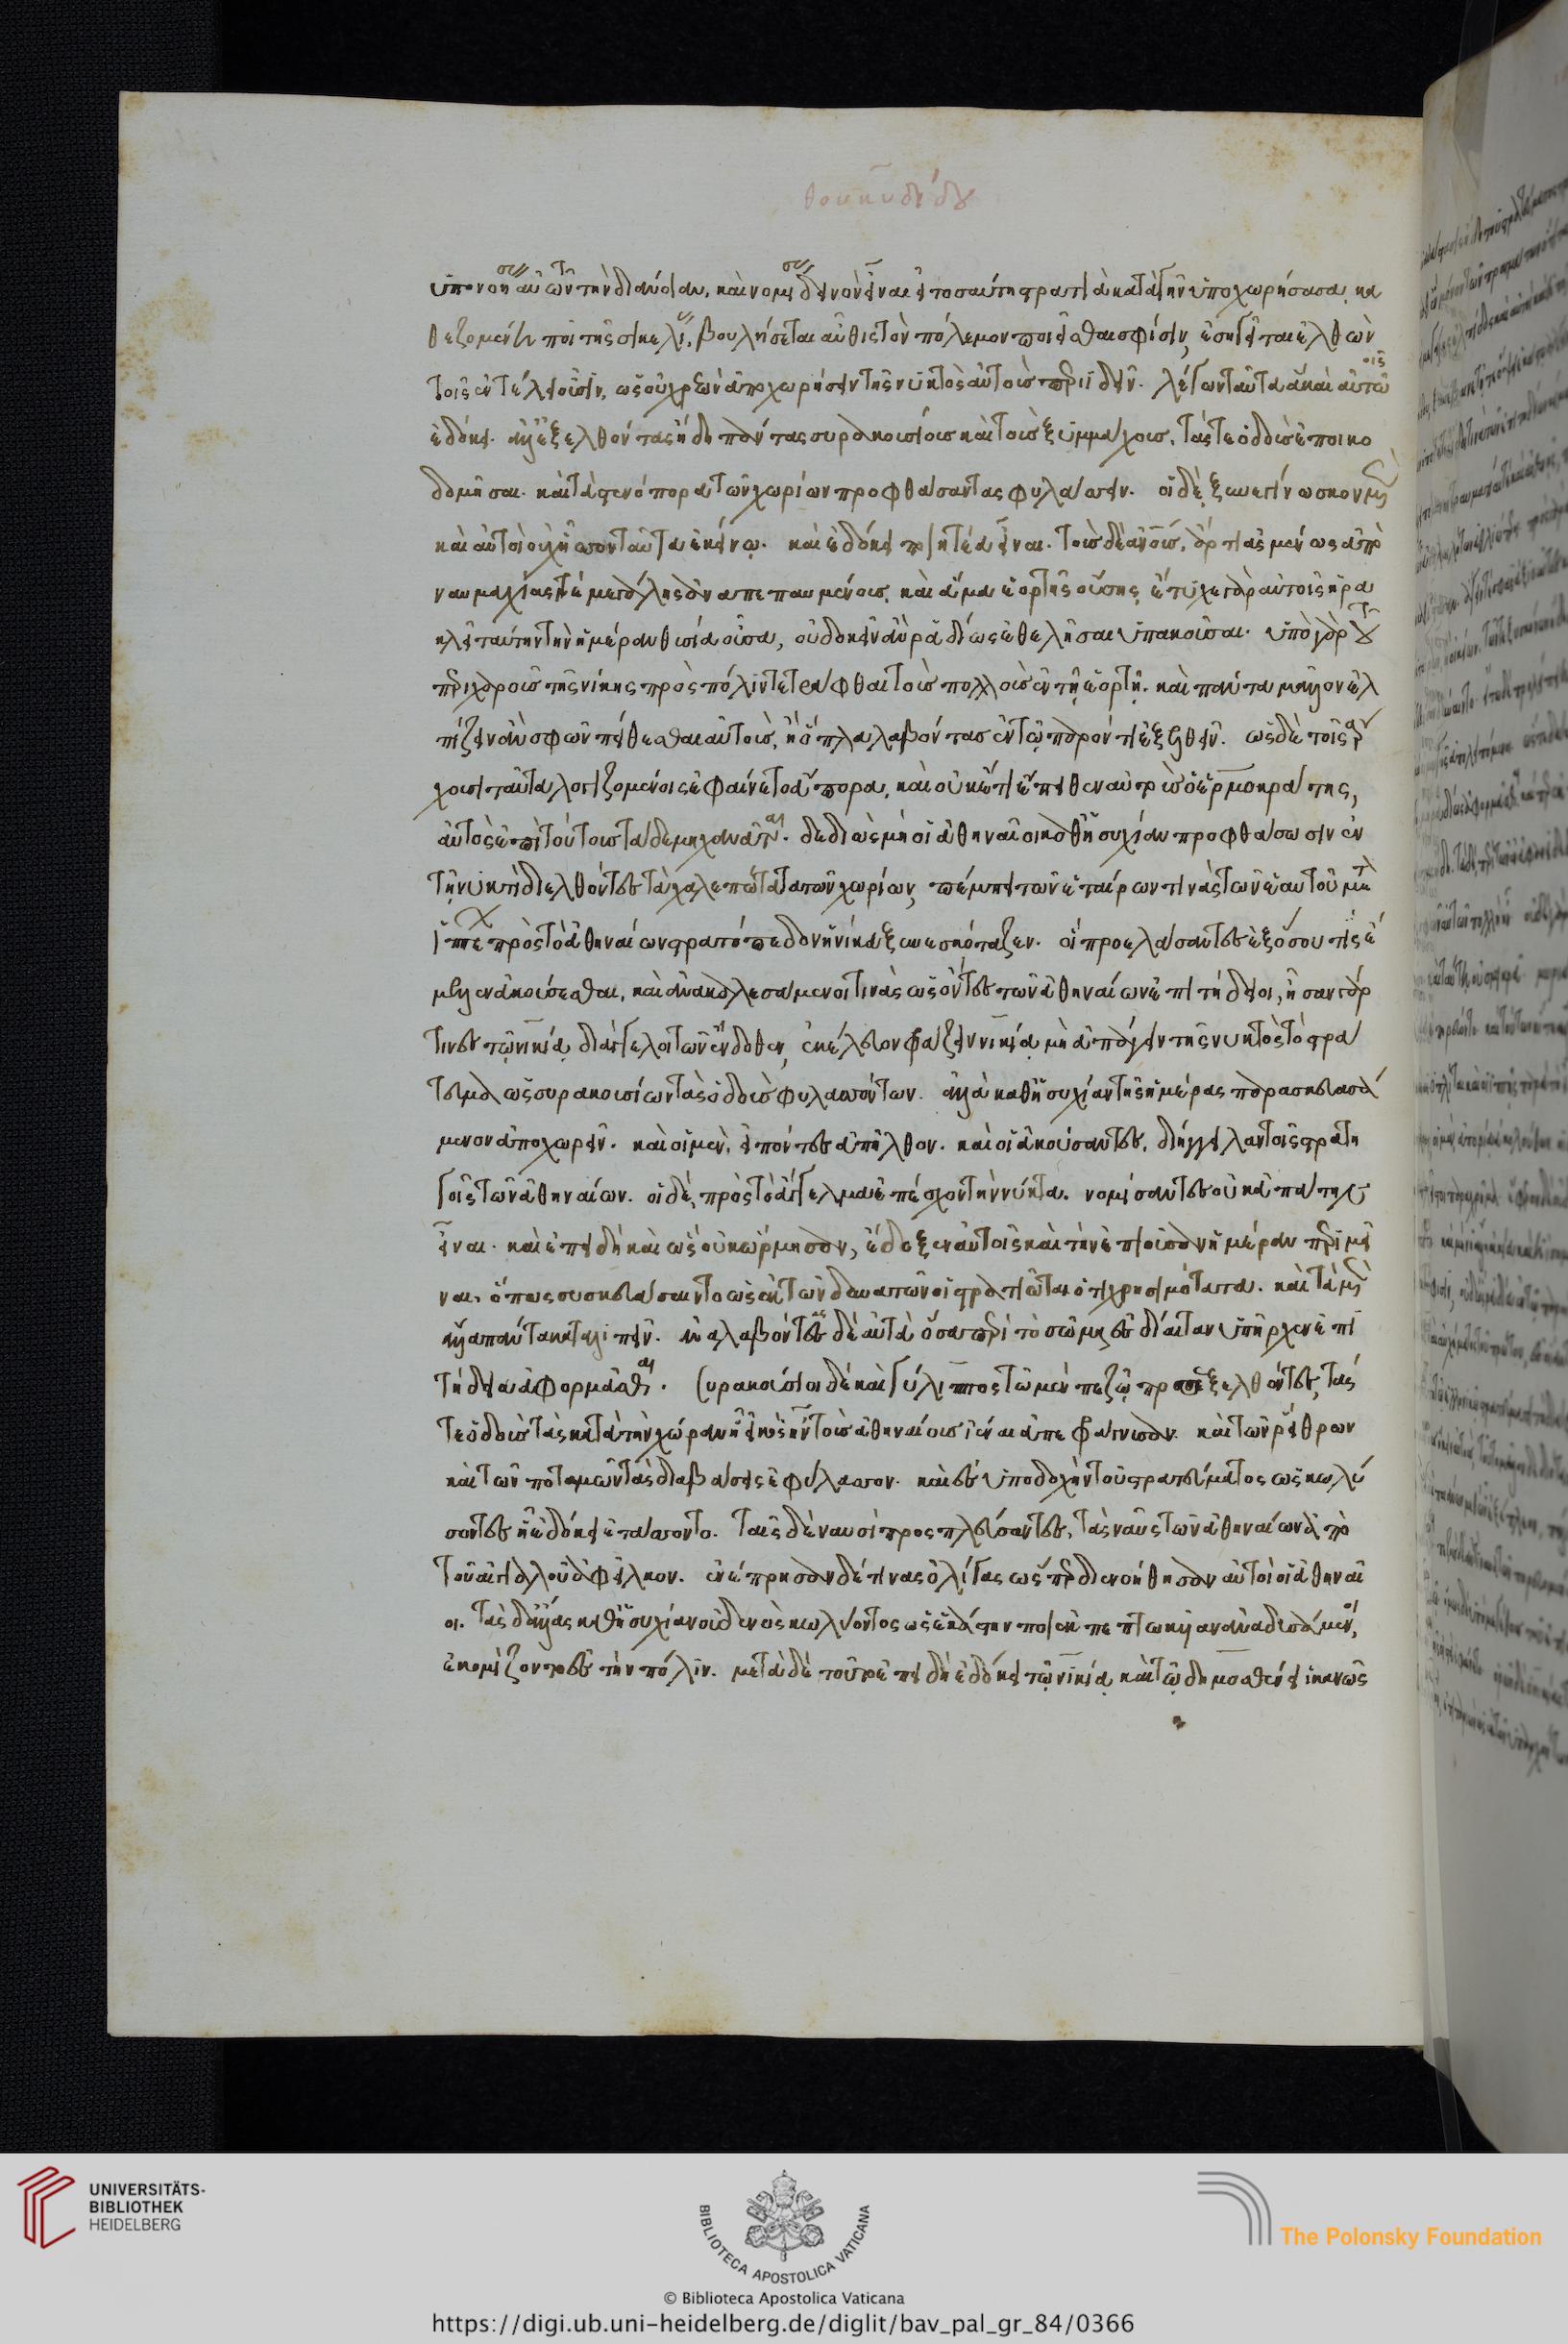 θουκυδίδου
ὑπονοήσας αὐτῶν τὴν διάνοιαν, καὶ νομίσας δεινὸν εἶναι εἰ τοσαύτη στρατιὰ κατὰ γῆν ὑποχωρήσασα, κα
θεζομένη ποι τῆς σικελίας, βουλήσεται αὖθις τὸν πόλεμον ποιεῖσθαι σφίσιν, ἐσηγεῖται ἐλθὼν
τοῖς ἐν τέλει οὖσιν, ὡς οὐ χρεὼν ἀποχωρήσειν τῆς νυκτὸς αὐτοὺς περιιδεῖν. λέγων ταῦτα ἃ καὶ αὐτῶ
ἐδόκει. ἀλλ' ἐξελθόντας ἤδη πάντας συρακουσίους καὶ τοὺς ξυμμάχους, τάς τε ὁδοὺς ἐποικο
δομῆσαι. καὶ τὰ στενόπορα τῶν χωρίων προφθάσαντας φυλάσσειν. οἱ δὲ ξυνεγίνωσκον μὲν
καὶ αὐτοὶ οὐχ ἧσσον ταῦτα ἐκείνῳ. καὶ ἐδόκει ποιητέα εἶναι. τοὺς δὲ ἀνους, ἄρτι ἀσμένως ἀπὸ
ναυμαχίας τὲ μεγάλης ἀναπεπαυμένους, καὶ ἅμα ἑορτῆς οὔσης, ἔτυχε γὰρ αὐτοῖς ἡρα
κλεῖ ταύτην τὴν ἡμέραν θυσία οὖσα, οὐ δοκεῖν ἂν ῥᾳδίως ἐθελῆσαι ὑπακοῦσαι. ὑπὸ γὰρ τοῦ
περιχαροῦς τῆς νίκης πρὸς πόσιν τετράφθαι τοὺς πολλοὺς ἐν τῇ ἑορτῇ. καὶ πάντα μᾶλλον ἐλ
πίζειν ἂν σφῶν πείθεσθαι αὐτοὺς, ἢ ὅπλα λαβόντας ἐν τῷ παρόντι ἐξελθεῖν. ὡς δὲ τοῖς ἄρ
χουσι ταῦτα λογιζομένοις ἐφαίνετο ἄπορα, καὶ οὐκέτι ἔπειθεν αὐτοὺς ὁ ἑρμοκράτης,
αὐτὸς ἐπὶ τούτοις τάδε μηχανᾶται. δεδιὼς μὴ οἱ ἀθηναῖοι καθ' ἡσυχίαν προφθάσωσιν ἐν
τῇ νυκτὶ διελθόντες τὰ χαλεπώτατα τῶν χωρίων, πέμπει τῶν ἑταίρων τινὰς τῶν ἑαυτοῦ μετὰ
ἱππέων πρὸς τὸ ἀθηναίων στρατόπεδον ἡνίκα ξυνεσκόταζεν. οἳ προσελάσαντες ἐξ ὅσου τὶς ἔ
μελλεν ἀκούσεσθαι, καὶ ἀνακαλεσάμενοι τινὰς ὡς ὄντες τῶν ἀθηναίων ἐπιτήδειοι, ἦσαν γάρ
τινες τῷ νικίᾳ διάγγελοι τῶν ἔνδοθεν, ἐκέλευον φράζειν νικίᾳ μὴ ἀπάγειν τῆς νυκτὸς τὸ στρά
τευμα ὡς συρακουσίων τὰς ὁδοὺς φυλασσόντων. ἀλλὰ καθ' ἡσυχίαν τῆς ἡμέρας παρασκευασά
μενον ἀποχωρεῖν. καὶ οἱ μὲν, εἰπόντες ἀπῆλθον. καὶ οἱ ἀκούσαντες, διήγγειλαν τοῖς στρατη
γοῖς τῶν ἀθηναίων. οἱ δὲ, πρὸς τὸ ἄγγελμα ἐπέσχον τὴν νύκτα. νομίσαντες οὐκ ἀπάτην
εἶναι. καὶ ἐπειδὴ καὶ ὣς οὐκ ὥρμησαν, ἔδοξεν αὐτοῖς καὶ τὴν ἐπιοῦσαν ἡμέραν περιμεῖ
ναι, ὅπως συσκευάσαιντο ὡς ἐκ τῶν δυνατῶν οἱ στρατιῶται ὅτι χρησιμώτατα. καὶ τὰ μὲν
ἄλλα πάντα καταλιπεῖν. ἀναλαβόντες δὲ αὐτὰ ὅσα περὶ τὸ σῶμα ἐς δίαιταν ὑπῆρχεν ἐπι
τήδεια ἀφορμᾶσθαι. Συρακούσιοι δὲ καὶ γύλιππος τῷ μὲν πεζῷ προεξελθόντες, τάς
τε ὁδοὺς τὰς κατὰ τὴν χώραν ᾗ εἰκὸς ἦν τοὺς ἀθηναίους ἰέναι ἀπεφάργνυσαν. καὶ τῶν ῥείθρων
καὶ τῶν ποταμῶν τὰς διαβάσεις ἐφύλασσον. καὶ ἐς ὑποδοχὴν τοῦ στρατεύματος ὡς κωλύ
σοντες ᾗ ἐδόκει ἐτάσσοντο. ταῖς δὲ ναυσὶ προσπλεύσαντες, τὰς ναῦς τῶν ἀθηναίων ἀπὸ
τοῦ αἰγιαλοῦ ἀφεῖλκον. ἐνέπρησαν δέ τινας ὀλίγας ὥσπερ διενοήθησαν αὐτοὶ οἱ ἀθηναῖ
οι. τὰς δ' ἄλλας καθ' ἡσυχίαν οὐδενὸς κωλύοντος ὡς ἑκάστην ποι ἐκπεπτωκυῖαν ἀναδησάμενοι,
ἐκόμιζον ἐς τὴν πόλιν. μετὰ δὲ τοῦτο ἐπειδὴ ἐδόκει τῷ νικίᾳ καὶ τῷ δημοσθένει ἱκανῶς
UNIVERSITÄTS-
BIBLIOTHEK
HEIDELBERG
BIBLIOTECA APOSTOLICA VATICANA
The Polonsky Foundation
© Biblioteca Apostolica Vaticana
https://digi.ub.uni-heidelberg.de/diglit/bav_pal_gr_84/0366